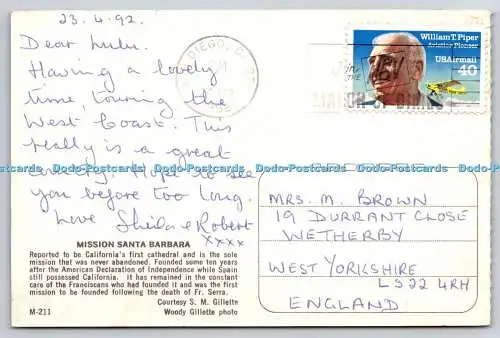 23.4.92.
Dear Lulu.
Having a lovely
time, touring the
West Coast. This
really is a great
country. Hope to see
you before too long.
Love Sheila & Robert
xxxx
MISSION SANTA BARBARA
Reported to be California's first cathedral and is the sole
mission that was never abandoned. Founded some ten years
after the American Declaration of Independence while Spain
still possessed California. It has remained in the constant
care of the Franciscans who had founded it and was the first
mission to be founded following the death of Fr. Serra.
Courtesy S. M. Gillette
M-211 Woody Gillette photo
DIEGO, CA
PM
William T. Piper
Aviation Pioneer
USAirmail
40
MRS. M. BROWN
19 DURRANT CLOSE
WETHERBY
WEST YORKSHIRE
LS22 4RH
ENGLAND
Docards-Postcards Docards-Postcards Docards-Postcards Docards-Postcards